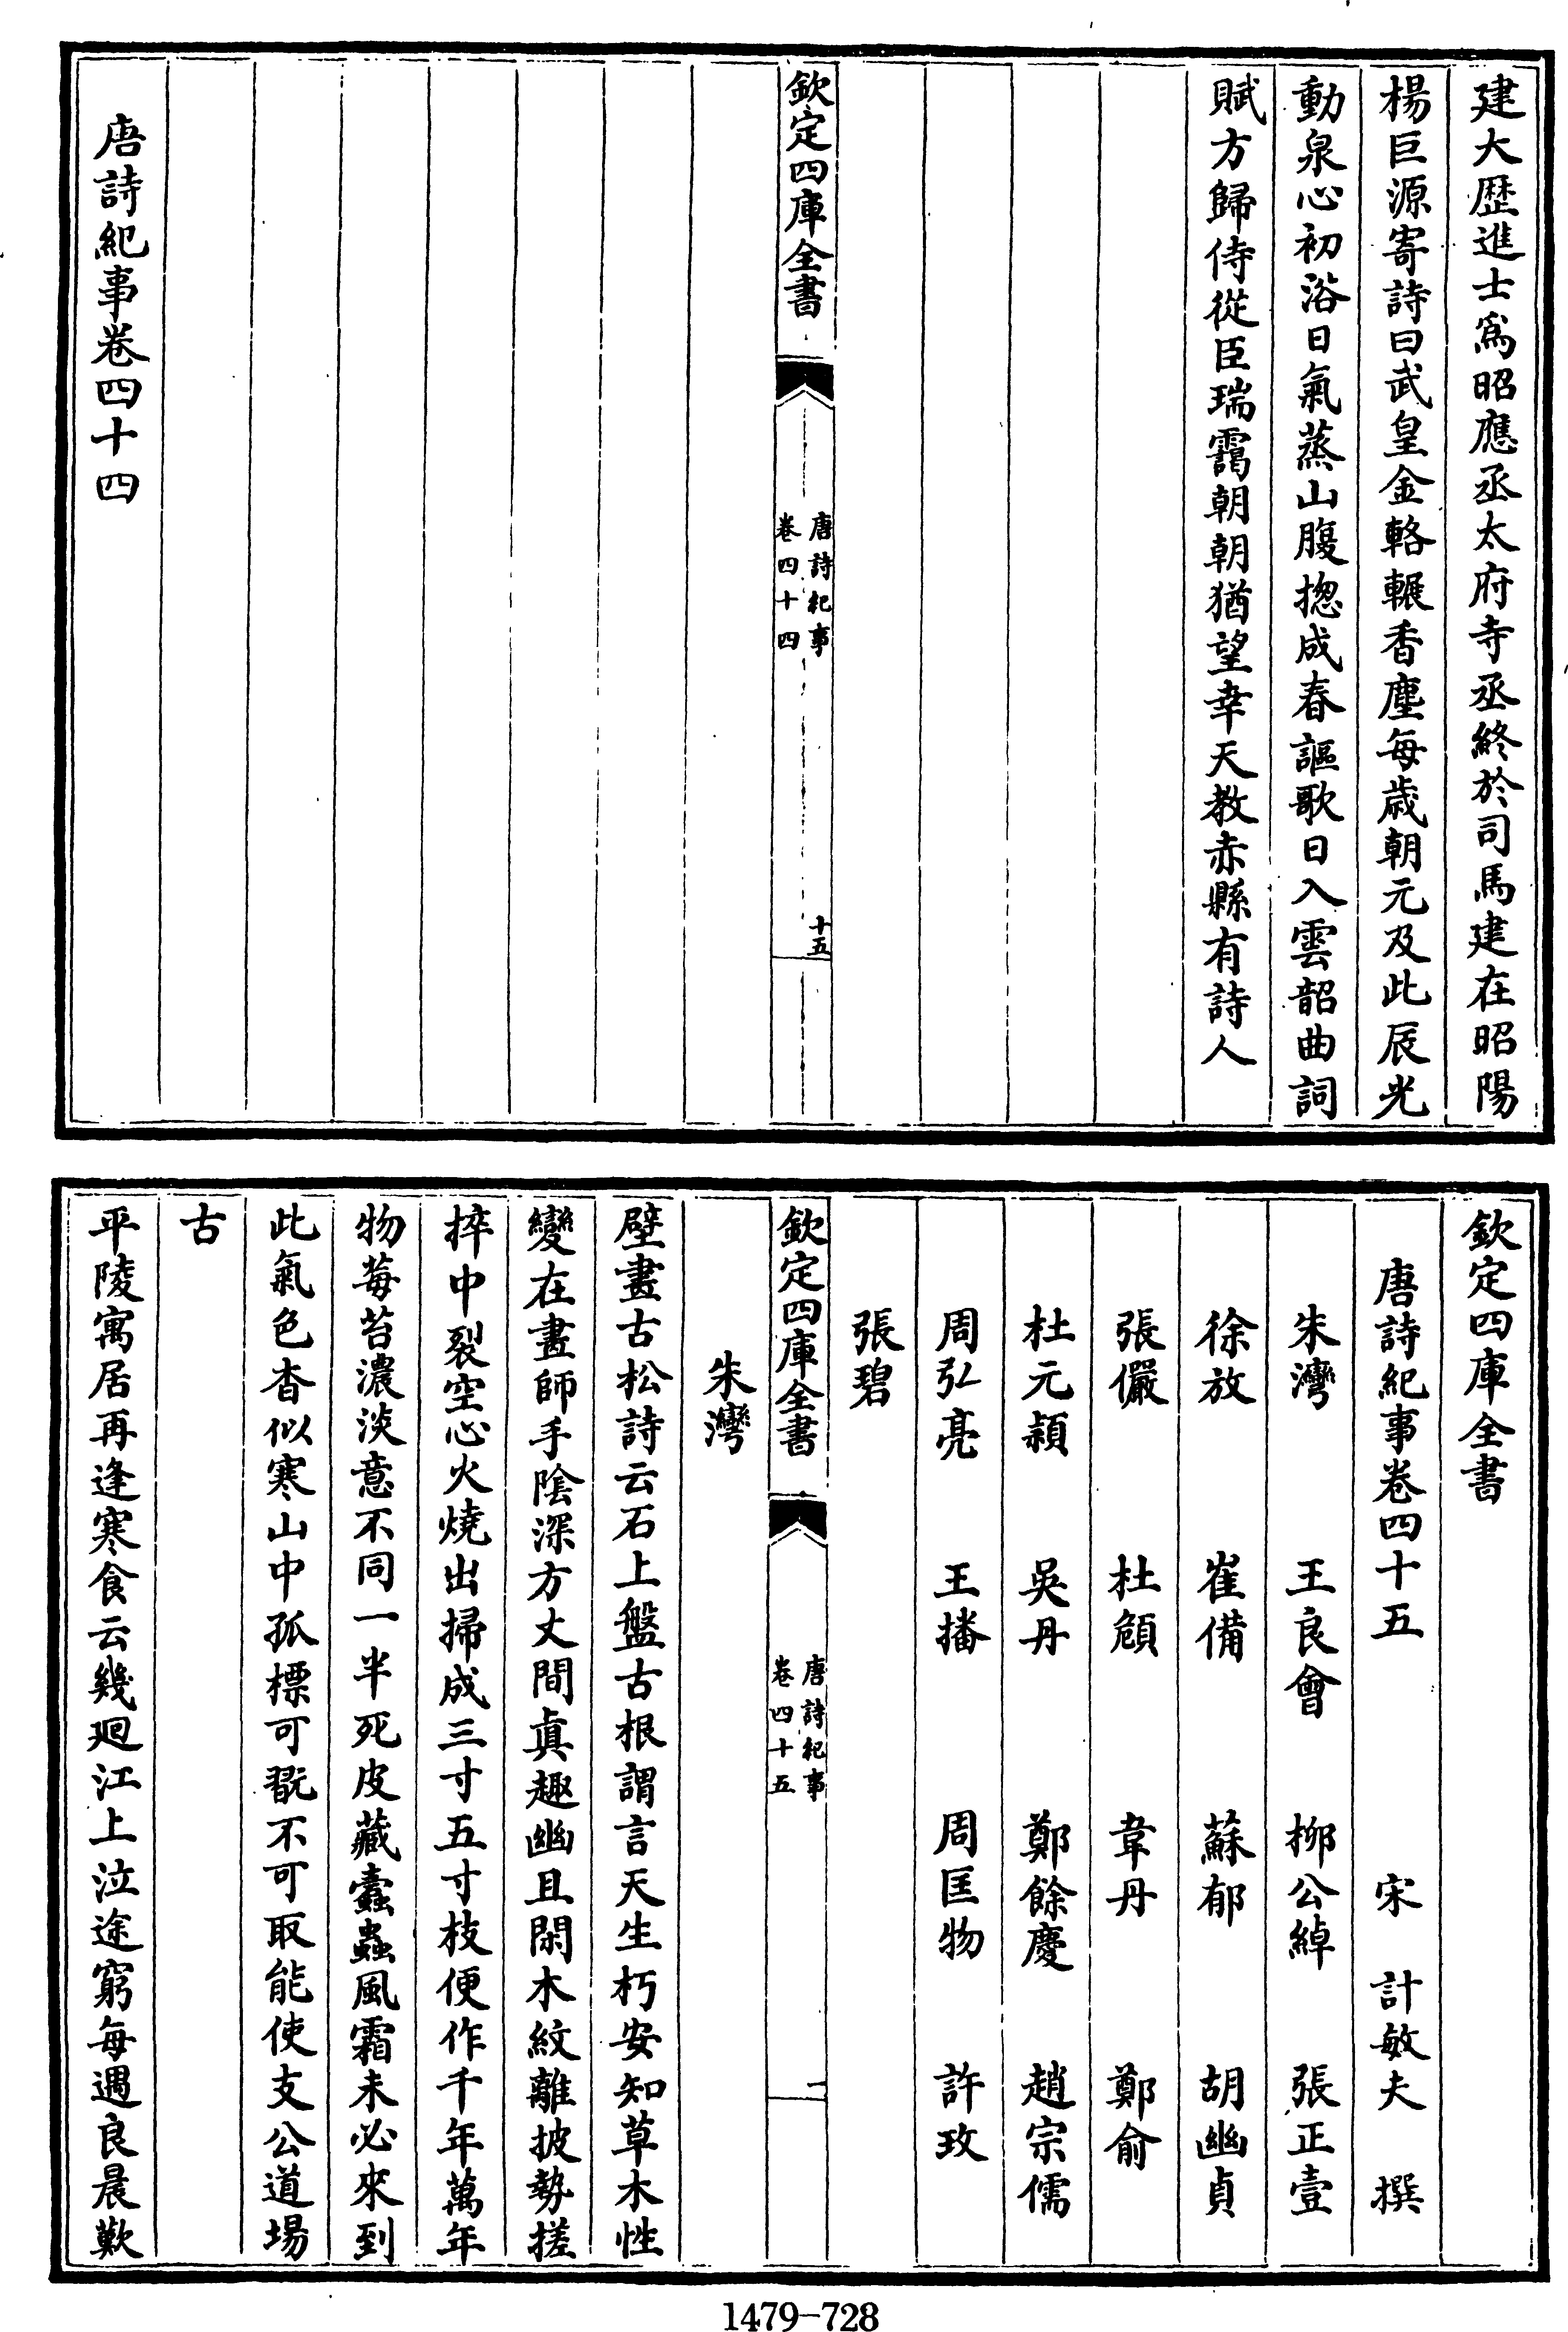 建大歴進士爲昭應丞太府寺丞終於司馬建在昭陽
楊巨源寄詩曰武皇金輅輾香塵每歳朝元及此辰光
動泉心初浴日氣蒸山腹揔成春謳歌日入雲韶曲詞
賦方歸侍從臣瑞靄朝朝猶望幸天教赤縣有詩人
欽定四庫全書
唐詩紀事
卷四十四
十五
唐詩紀事卷四十四
欽定四庫全書
唐詩紀事卷四十五 宋 計敏夫 撰
朱灣 王良會 栁公綽 張正壹
徐放 崔備 蘇郁 胡幽貞
張儼 杜頠 韋丹 鄭俞
杜元頴 吳丹 鄭餘慶 趙宗儒
周弘亮 王播 周匡物 許玫
張碧
欽定四庫全書
唐詩紀事
卷四十五
一
朱灣
壁畫古松詩云石上盤古根謂言天生朽安知草木性
變在畫師手陰深方丈間眞趣幽且閑木紋離披勢搓
捽中裂空心火燒出掃成三寸五寸枝便作千年萬年
物莓苔濃淡意不同一半死皮藏蠧蟲風霜未必來到
此氣色杳似寒山中孤標可翫不可取能使支公道場
古
平陵寓居再逢寒食云幾廻江上泣途窮每遇良晨歎
1479-728